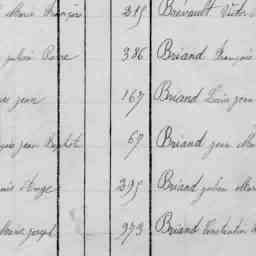 Marie François 215 Brévault Victor
julien Pierre 386 Briand François
jean 167 Briand Louis jean
jean Baptiste 67 Briand jean Ma
Ange 295 Briand julien Marie
Marie joseph 973 Briand Constantin